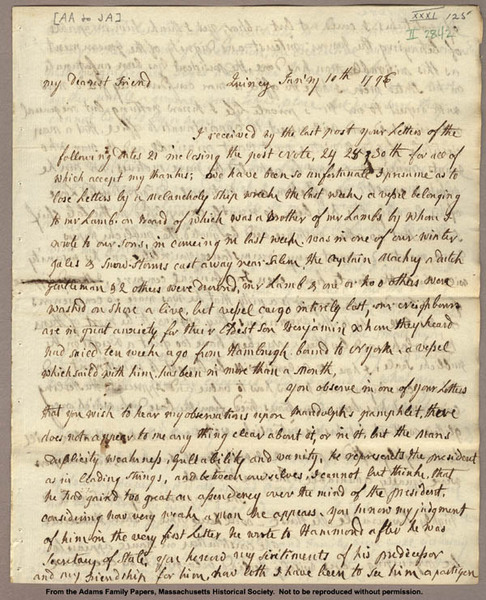 [AA to JA]
XXXI 125
II 2842
my Dearest Friend Quincy Jan'ry 10th 1796
I received by the last post your Letters of the
following dates 21 inclosing the post Note, 24 28 30th for all of
which accept my thanks; we have been so unfortunate I presume as to
lose Letters by a melancholy ship wreck the last week a vessel belonging
to mr Lamb. on Board of which was a Brother of mr Lambs by whom I
wrote to our Sons, in comeing in last week was in one of our winter
gales & Snow Storms cast away near Salem the Captain Mackey a dutch
gentleman & 2 others were drownd, mr Lamb & one or two others were
washd on shore a live, but vessel cargo intirely lost, our Neighbours
are in great anxiety for their Eldest Son Benjamin whom they heard
had saild ten weeks ago from Hamburgh bound to N york. a vessel
which saild with him has been in more than a Month,
You observe in one of your Letters
that you wish to hear my observations upon Randolphs pamphlet, there
does not appear to me any thing clear about it, or in it, but the Mans
duplicity weakness, gullability and vanity, he represents the president
as in leading strings, and between ourselves, I cannot but think, that
he had gaind too great an assendency over the mind of the president,
considering how very weak a man he appears. You know my judgment
of him on the very first Letter he wrote to Hammond after he was
Secretary of State, you heard my sentiments of his predicesor
and my Friendship for him, how loth I have been to see him a partizen
From the Adams Family Papers, Massachusetts Historical Society. Not to be reproduced without permission.